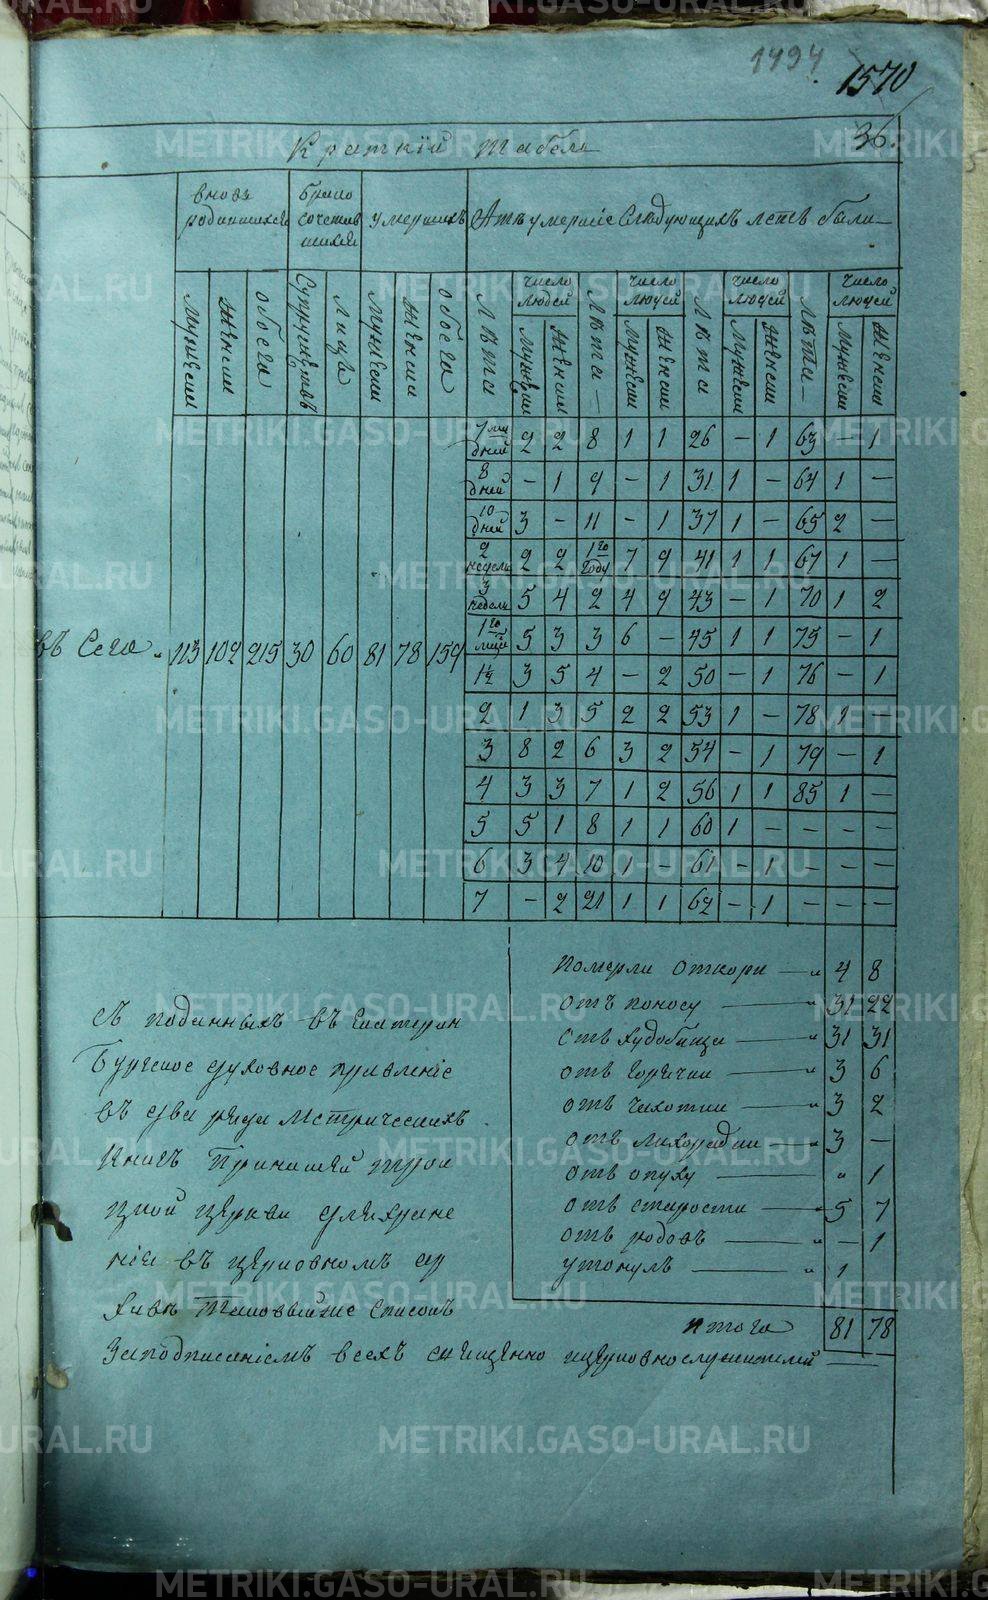 1494
1570
36.
Краткій Табель
вновь родившихся
брако сочетав шихся
умершихъ
А тѣ умершіе Следующихъ летъ были
число людей
число людей
число людей
число людей
Мужеска
Женска
обоего
Супружествъ
Лица
Мужеска
Женска
обоего
Лѣта
Мужеска
Женска
Лѣта
Мужеска
Женска
Лѣта
Мужеска
Женска
Лѣта
Мужеска
Женска
7ми дней 2 2 8 1 1 26 - 1 63 - 1
8 дней - 1 9 - 1 31 1 - 64 1 -
10 дней 3 - 11 - 1 37 1 - 65 2 -
2 недели 2 2 1го году 7 9 41 1 1 67 1 -
3 недели 5 4 2 4 9 43 - 1 70 1 2
1го 5 3 3 6 - 45 1 1 75 - 1
въ Сего 113 102 215 30 60 81 78 159
1½ 3 5 4 - 2 50 - 1 76 - 1
2 1 3 5 2 2 53 1 - 78 1 -
3 8 2 6 3 2 54 - 1 79 - 1
4 3 3 7 1 2 56 1 1 85 1 -
5 5 1 8 1 1 60 1 - - - -
6 3 4 10 1 - 61 - 1 - - -
7 - 2 21 1 1 62 - 1 - - -
Померли от кори 4 8
отъ поносу 31 22
отъ худобища 31 31
отъ горячки 3 6
отъ чахотки 3 2
отъ лихорадки 3 -
отъ опуху " 1
отъ старости 5 7
отъ родовъ - 1
утонулъ 1
итога 81 78
съ поданныхъ въ Екатерин
бургское духовное правленіе
въ два ряда метрическихъ
книгъ Трои
цкой церкви для хране
ніи въ церковномъ ар
хивѣ таковый же списокъ
За подписаніемъ всехъ священно и церковнослужителей
METRIKI.GASO-URAL.RU